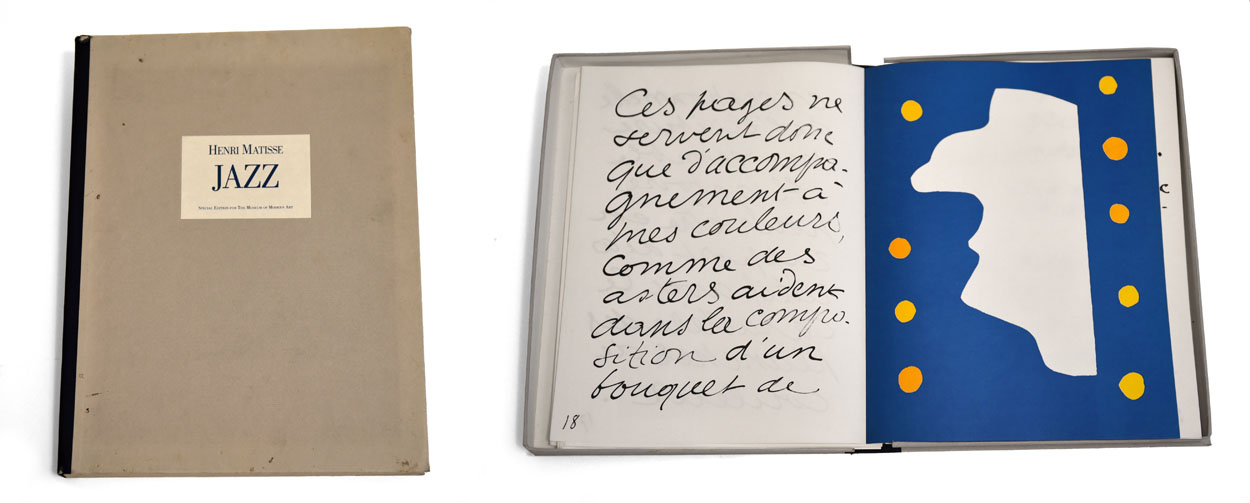 HENRI MATISSE
JAZZ
SPECIAL EDITION FOR THE MUSEUM OF MODERN ART
Ces pages ne
servent donc
que d'accompa-
gnement à
mes couleurs,
comme des
asters aident
dans la compo-
sition d'un
bouquet de
18